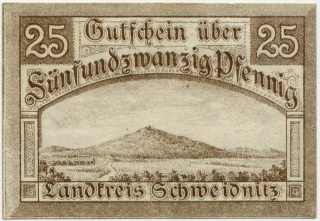 25 Gutschein über 25
Fünfundzwanzig Pfennig
Landkreis Schweidnitz